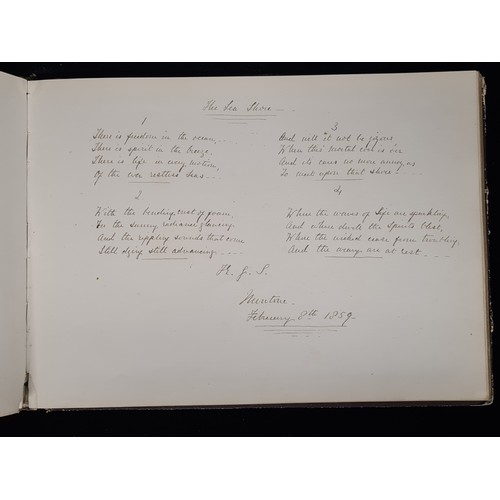 The Sea Shore
1
There is freedom in the ocean,
There is spirit in the breeze,
There is life in every motion,
Of the ever restless Seas
2
With the bending crest of foam,
In the sunny radiance glancing
And the rippling sounds that come
Still dying still advancing
3
And will it not be joyous
When this mortal coil is o'er
And its cares no more annoy us
To meet upon that shore!
4
Where the waves of life are sparkling,
And where dwells the Spirits blest,
Where the wicked cease from troubling,
And the weary are at rest
H. J. S.
Mentone
February 8th 1859